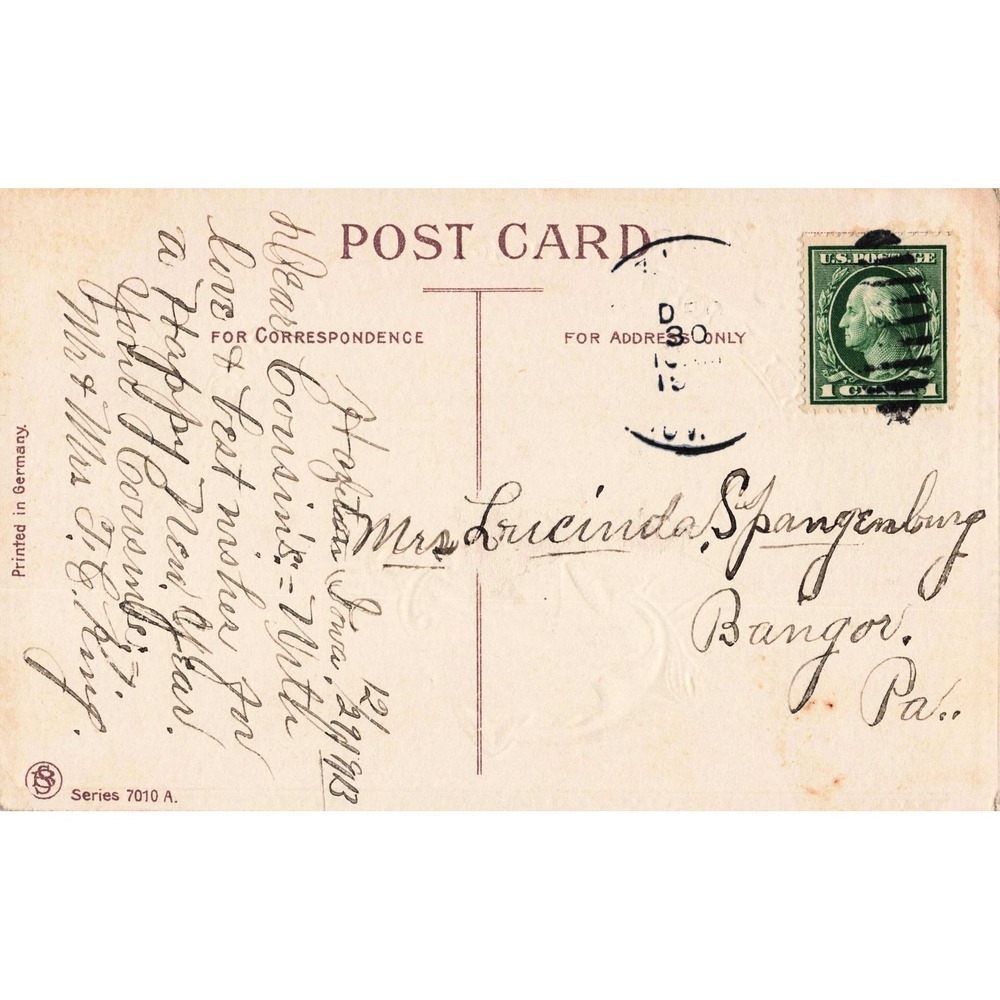 POST CARD
FOR CORRESPONDENCE
FOR ADDRESS ONLY
U.S. POSTAGE
1 CENT 1
DEC
30
Iowa.
12/29/1913
Dear Cousins:= With
love & best wishes, for
a Happy New Year.
Your Cousins,
Mr & Mrs King.
Mrs Lucinda Spangenburg
Bangor.
Pa..
Printed in Germany.
Series 7010 A.